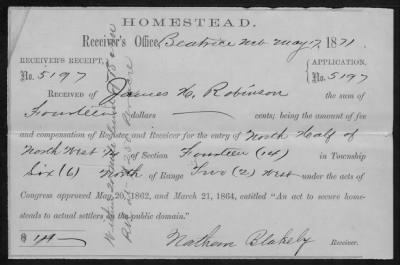 HOMESTEAD.
Receiver's Office, Beatrice Neb May 17, 1871.
RECEIVER'S RECEIPT, APPLICATION,
No. 5197 No. 5197
RECEIVED OF James H. Robinson the sum of
Fourteen dollars cents; being the amount of fee
and compensation of Register and Receiver for the entry of North Half of
North West 1/4 of Section Fourteen (14) in Township
Six (6) North of Range Two (2) West under the acts of
Congress approved May 20, 1862, and March 21, 1864, entitled "An act to secure home-
steads to actual settlers on the public domain."
$ 14
Nathan Blakely Receiver.